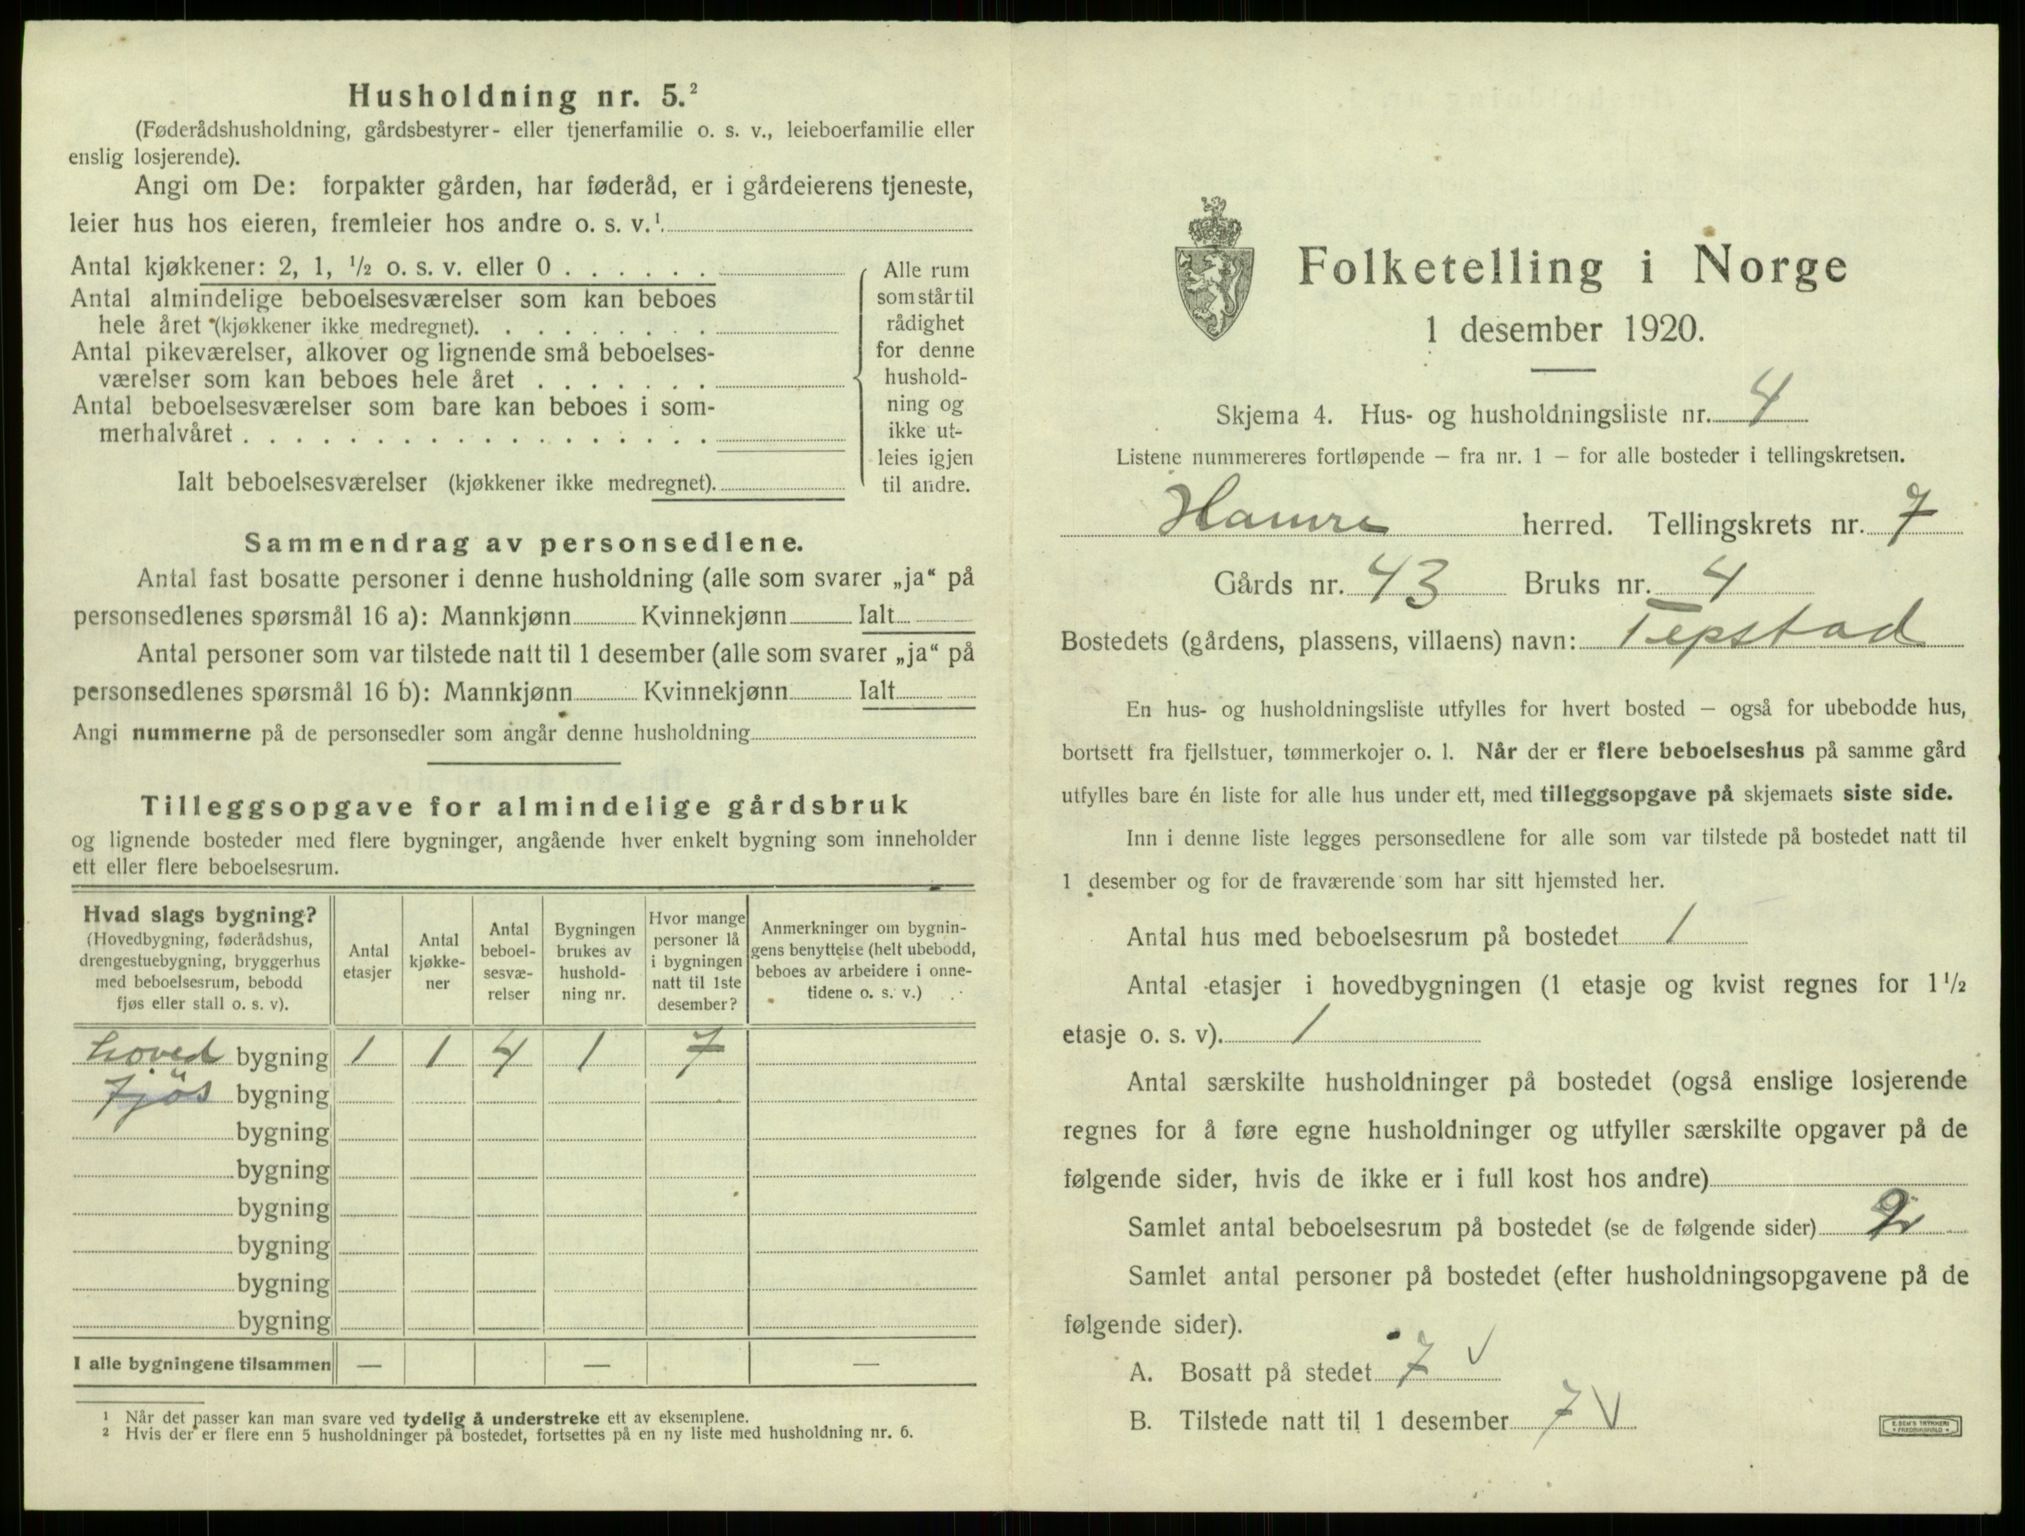 Husholdning nr. 5.²
(Føderådshusholdning, gårdsbestyrer- eller tjenerfamilie o. s. v., leieboerfamilie eller
enslig losjerende).
Angi om De: forpakter gården, har føderåd, er i gårdeierens tjeneste,
leier hus hos eieren, fremleier hos andre o. s. v.¹
Antal kjøkkener: 2, 1, ½ o. s. v. eller 0 . . . . . .
Antal almindelige beboelsesværelser som kan beboes
hele året (kjøkkener ikke medregnet). . . . . . . . .
Antal pikeværelser, alkover og lignende små beboelses-
værelser som kan beboes hele året . . . . . . .
Antal beboelsesværelser som bare kan beboes i som-
merhalvåret . . . . . . . . . . . . . . . . . .
Ialt beboelsesværelser (kjøkkener ikke medregnet).
Alle rum
som står til
rådighet
for denne
hushold-
ning og
ikke ut-
leies igjen
til andre.
Sammendrag av personsedlene.
Antal fast bosatte personer i denne husholdning (alle som svarer „ja“ på
personsedlenes spørsmål 16 a): Mannkjønn Kvinnekjønn Ialt
Antal personer som var tilstede natt til 1 desember (alle som svarer „ja“ på
personsedlenes spørsmål 16 b): Mannkjønn Kvinnekjønn Ialt
Angi nummerne på de personsedler som angår denne husholdning
Tilleggsopgave for almindelige gårdsbruk
og lignende bosteder med flere bygninger, angående hver enkelt bygning som inneholder
ett eller flere beboelsesrum.
Hvad slags bygning?
(Hovedbygning, føderådshus,
drengestuebygning, bryggerhus
med beboelsesrum, bebodd
fjøs eller stall o. s. v).
Antal
etasjer
Antal
kjøkke-
ner
Antal
beboel-
sesvæ-
relser
Bygningen
brukes av
hushold-
ning nr.
Hvor mange
personer lå
i bygningen
natt til 1ste
desember?
Anmerkninger om bygnin-
gens benyttelse (helt ubebodd,
beboes av arbeidere i onne-
tidene o. s. v.)
hoved bygning 1 1 4 1 7
Fjøs bygning
bygning
bygning
bygning
bygning
bygning
bygning
I alle bygningene tilsammen — — —
¹ Når det passer kan man svare ved tydelig å understreke ett av eksemplene.
² Hvis der er flere enn 5 husholdninger på bostedet, fortsettes på en ny liste med husholdning nr. 6.
Folketelling i Norge
1 desember 1920.
Skjema 4. Hus- og husholdningsliste nr. 4
Listene nummereres fortløpende — fra nr. 1 — for alle bosteder i tellingskretsen.
Hamre herred. Tellingskrets nr. 7
Gårds nr. 43 Bruks nr. 4
Bostedets (gårdens, plassens, villaens) navn: Tepstad
En hus- og husholdningsliste utfylles for hvert bosted — også for ubebodde hus,
bortsett fra fjellstuer, tømmerkojer o. l. Når der er flere beboelseshus på samme gård
utfylles bare én liste for alle hus under ett, med tilleggsopgave på skjemaets siste side.
Inn i denne liste legges personsedlene for alle som var tilstede på bostedet natt til
1 desember og for de fraværende som har sitt hjemsted her.
Antal hus med beboelsesrum på bostedet 1
Antal etasjer i hovedbygningen (1 etasje og kvist regnes for 1½
etasje o. s. v). 1
Antal særskilte husholdninger på bostedet (også enslige losjerende
regnes for å føre egne husholdninger og utfyller særskilte opgaver på de
følgende sider, hvis de ikke er i full kost hos andre)
Samlet antal beboelsesrum på bostedet (se de følgende sider)
Samlet antal personer på bostedet (efter husholdningsopgavene på de
følgende sider).
A. Bosatt på stedet 7 V
B. Tilstede natt til 1 desember 7 V
E. SEM'S TRYKKERI
FREDRIKSHALD